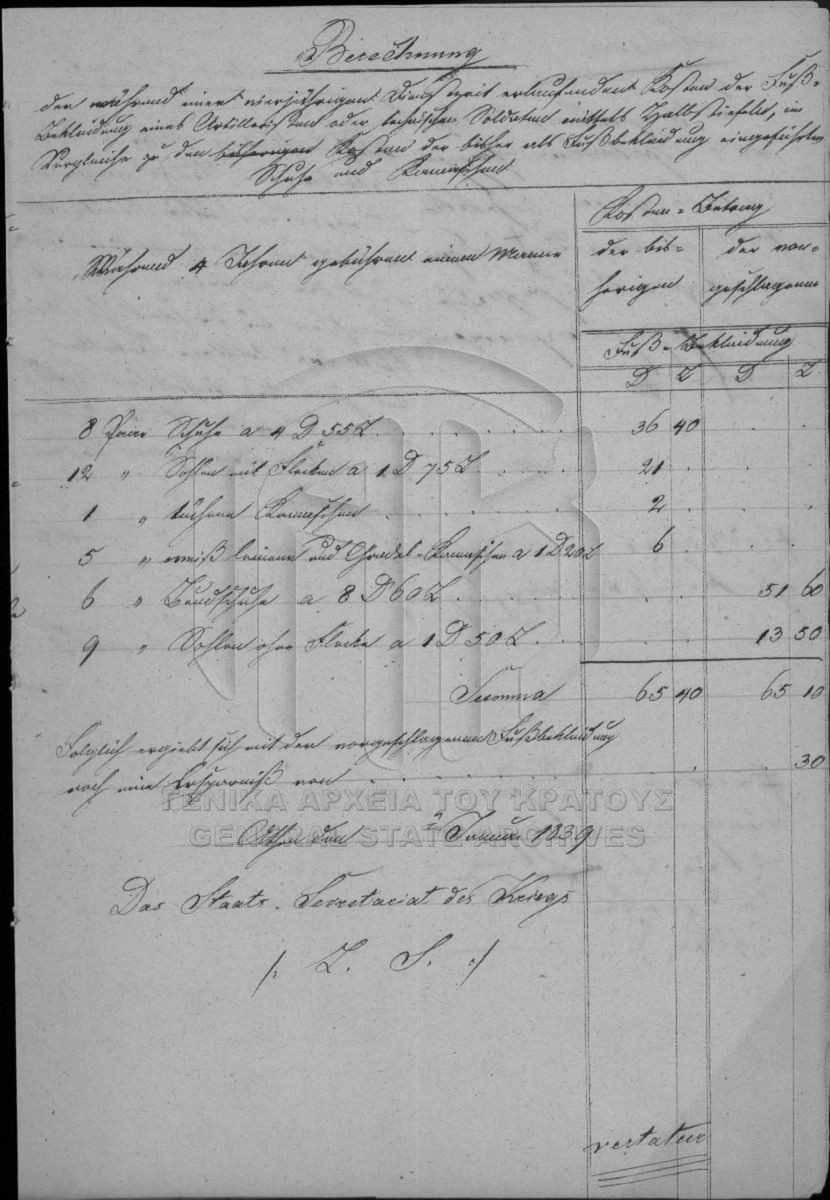 Berechnung
der während einer vierjährigen Dienstzeit erlaufenden Kosten der Fuß-
Bekleidung eines Artilleristen oder technischen Soldaten mittels Halbstiefeln, im
Vergleiche zu den bisherigen Kosten der bisher als Fußbekleidung eingeführten
Schuhe und Kamaschen
Kosten-Betrag
Während 4 Jahren gebühren einem Manne
der bis-
herigen
der vor-
geschlagenen
Fuß-Bekleidung
D L D L
8 Paar Schuhe a 4 D 55 L 36 40
12 " Sohlen mit Flecken a 1 D 75 L 21
1 " tuchene Kamaschen 2
5 " weiß leinene und Gradel-Kamaschen a 1 D 20 L 6
6 " Bundschuhe a 8 D 60 L 51 60
9 " Sohlen ohne Flecke a 1 D 50 L 13 50
Summa 65 40 65 10
Folglich ergiebt sich mit der vorgeschlagenen Fußbekleidung
noch eine Ersparniß von 30
Athen den Januar 1839
Das Staats-Secretariat des Kriegs
/: L. S. :/
vertatur
ΓΕΝΙΚΑ ΑΡΧΕΙΑ ΤΟΥ ΚΡΑΤΟΥΣ
GENERAL STATE ARCHIVES